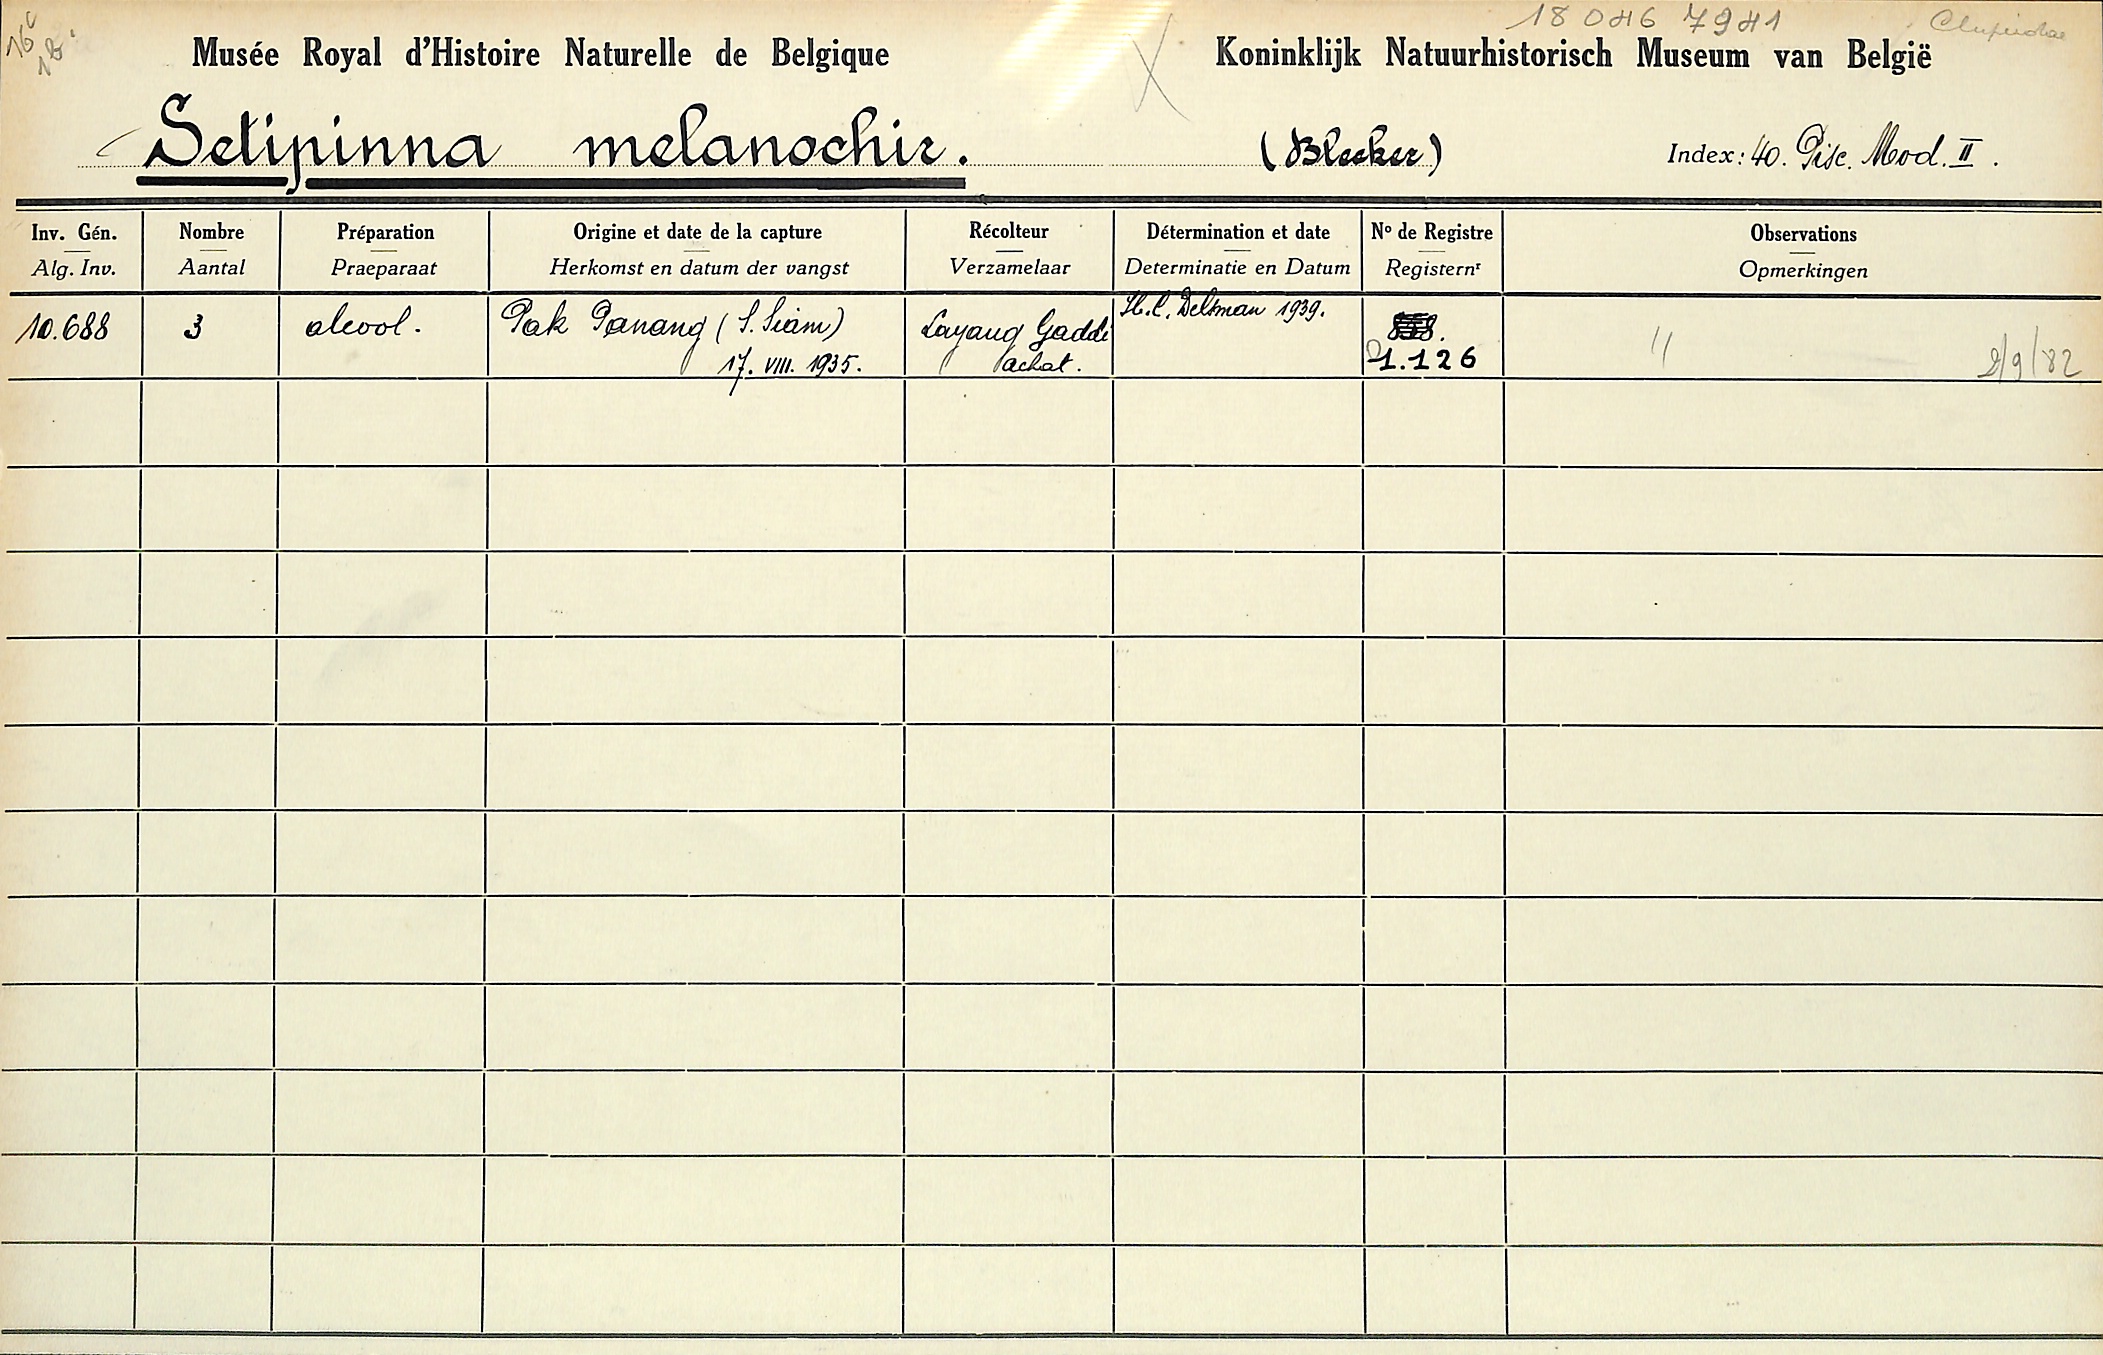 16c
18 046 7941
Clupeidae
Musée Royal d'Histoire Naturelle de Belgique
Koninklijk Natuurhistorisch Museum van België
Setipinna melanochir. (Bleeker) Index: 40. Pisc. Mod. II.
Inv. Gén. Nombre Préparation Origine et date de la capture Récolteur Détermination et date Nº de Registre Observations
Alg. Inv. Aantal Praeparaat Herkomst en datum der vangst Verzamelaar Determinatie en Datum Registernr Opmerkingen
10.688 3 alcool. Pak Panang (S. Siam) Layang Gaddi H.C. Delsman 1939.
17. VIII. 1935. achat. 1.126 " 2/9/82